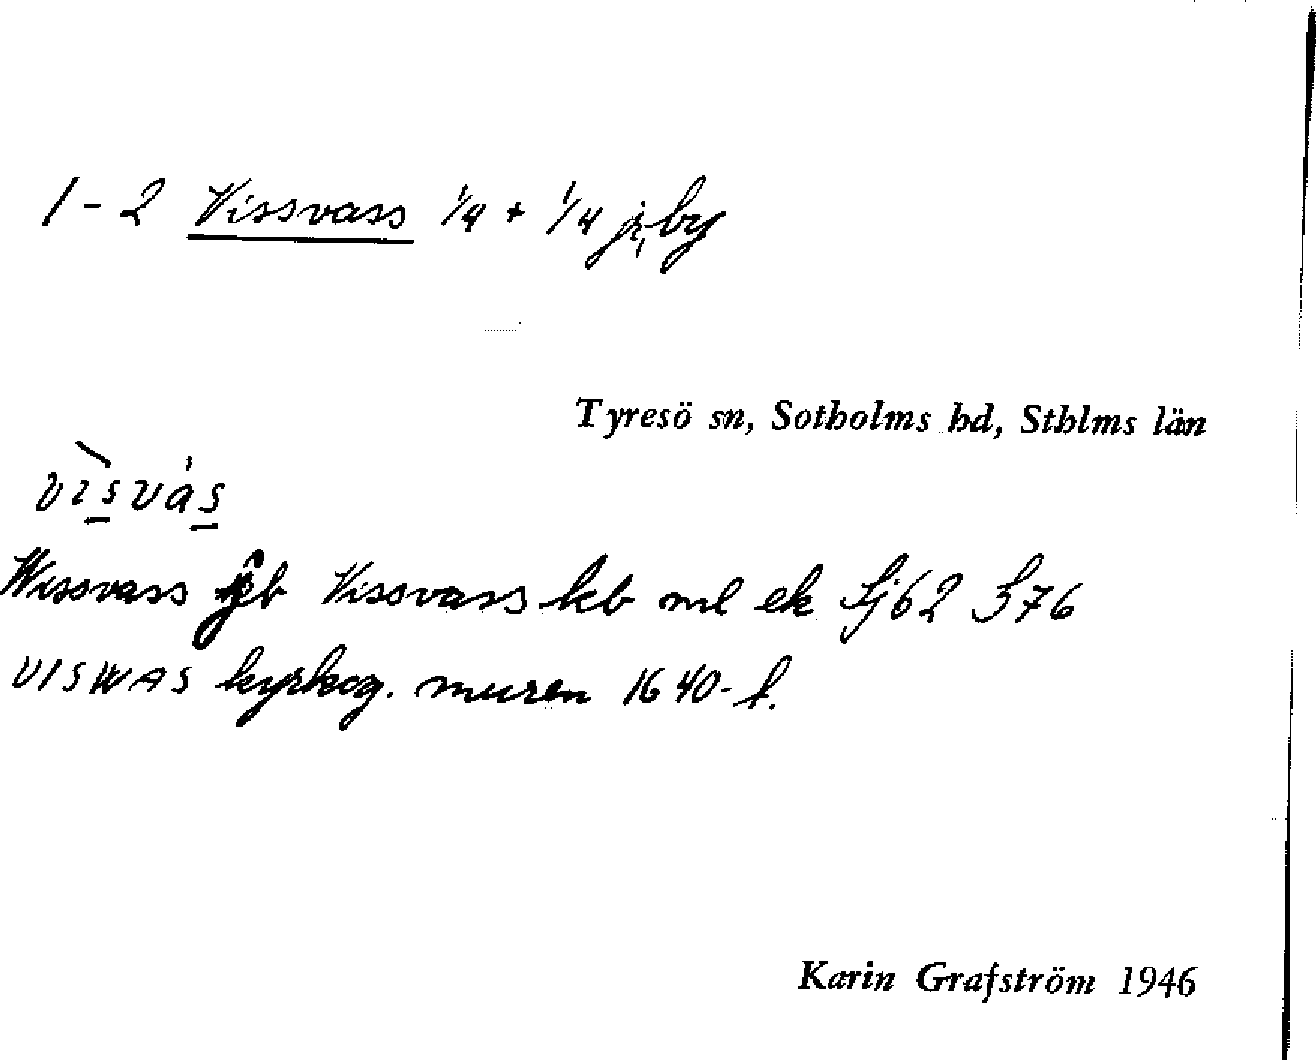 1-2 Vissvass 1/4 + 1/4 jr, by
Tyresö sn, Sotholms hd, Sthlms län
vìsvás
Wissvass jb Vissvass kb ml ek Sj62 S76
VISWAS kyrkog. muren 1640-t.
Karin Grafström 1946